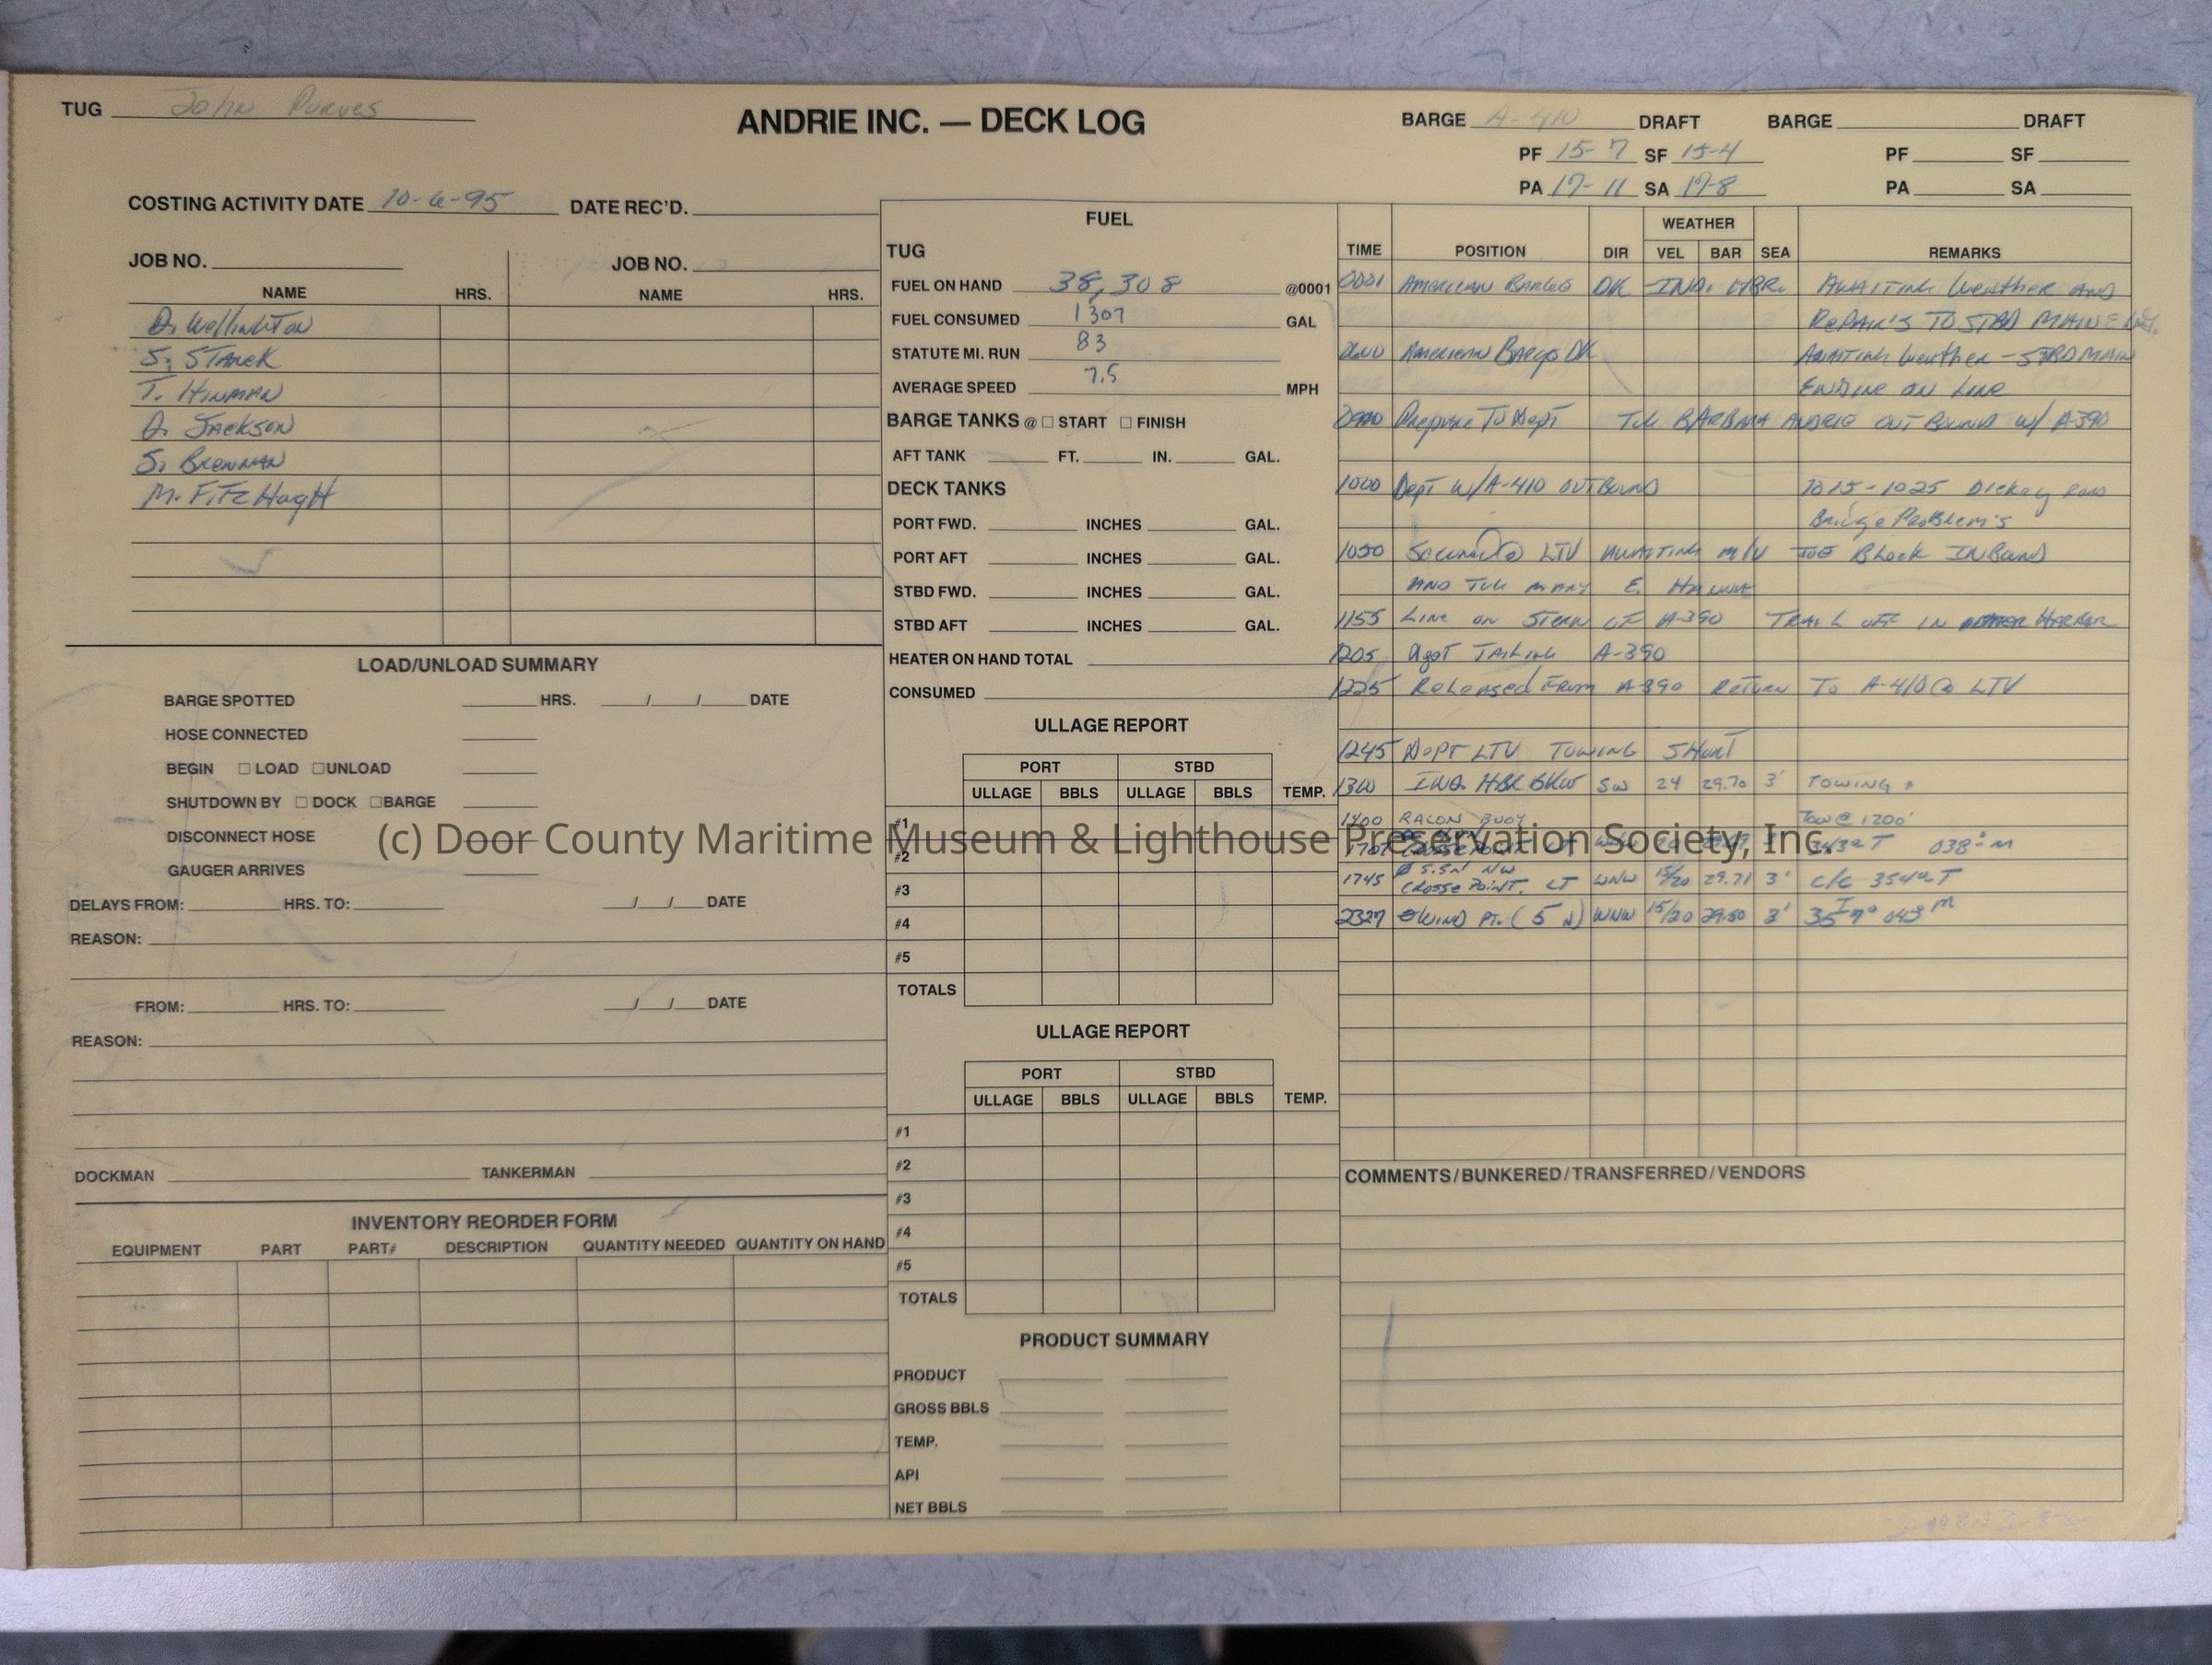 TUG John Purves
ANDRIE INC. — DECK LOG
BARGE A-410 DRAFT BARGE DRAFT
PF 15-7 SF 15-4 PF SF
PA 17-11 SA 17-8 PA SA
COSTING ACTIVITY DATE 10-6-95 DATE REC'D.
JOB NO. JOB NO.
NAME HRS. NAME HRS.
D. Wellington
S. STAREK
T. HINMAN
D. JACKSON
S. BRENNAN
M. FITZHUGH
LOAD/UNLOAD SUMMARY
BARGE SPOTTED HRS. / / DATE
HOSE CONNECTED
BEGIN LOAD UNLOAD
SHUTDOWN BY DOCK BARGE
DISCONNECT HOSE
GAUGER ARRIVES
DELAYS FROM: HRS. TO: / / DATE
REASON:
FROM: HRS. TO: / / DATE
REASON:
DOCKMAN TANKERMAN
INVENTORY REORDER FORM
EQUIPMENT PART PART# DESCRIPTION QUANTITY NEEDED QUANTITY ON HAND
FUEL
TUG
FUEL ON HAND 38,308 @0001
FUEL CONSUMED 1307 GAL
STATUTE MI. RUN 83
AVERAGE SPEED 7.5 MPH
BARGE TANKS @ START FINISH
AFT TANK FT. IN. GAL.
DECK TANKS
PORT FWD. INCHES GAL.
PORT AFT INCHES GAL.
STBD FWD. INCHES GAL.
STBD AFT INCHES GAL.
HEATER ON HAND TOTAL
CONSUMED
ULLAGE REPORT
PORT STBD
ULLAGE BBLS ULLAGE BBLS TEMP.
#1
#2
#3
#4
#5
TOTALS
ULLAGE REPORT
PORT STBD
ULLAGE BBLS ULLAGE BBLS TEMP.
#1
#2
#3
#4
#5
TOTALS
PRODUCT SUMMARY
PRODUCT
GROSS BBLS
TEMP.
API
NET BBLS
WEATHER
TIME POSITION DIR VEL BAR SEA REMARKS
0001 AMERICAN BARGES DK IND. HBR. AWAITING Weather AND
REPAIR'S TO STBD MAIN
American Barge DK AWAITING Weather - STBD MAIN
ENGINE ON LINE
Prepare To Dept TUG BARBARA ANDRIE OUTBOUND W/ A-390
1000 Dept W/A-410 OUTBOUND 1015-1025 Dickey ROAD
Bridge Problem's
1050 Secured @ LTV AWAITING M/V JOE Block INBOUND
AND TUG MARY E. HANNA
1155 LINE ON STERN OF A-390 TRAIL OFF IN HARBOR
1205 TAILING A-390
1225 Released From A-390 Return To A-410 @ LTV
1245 DEPT LTV TOWING SHORT
1300 IND. HBR BKW SW 24 29.70 3' TOWING
1400 RACON BUOY TOW @ 1200'
038° M
1745 5.5N NW CROSSE POINT. LT WNW 15/20 29.71 3' c/c 354° T
2327 WIND PT. (5 N) WNW 15/20 3' 357° T 043° M
COMMENTS/BUNKERED/TRANSFERRED/VENDORS
(c) Door County Maritime Museum & Lighthouse Preservation Society, Inc.